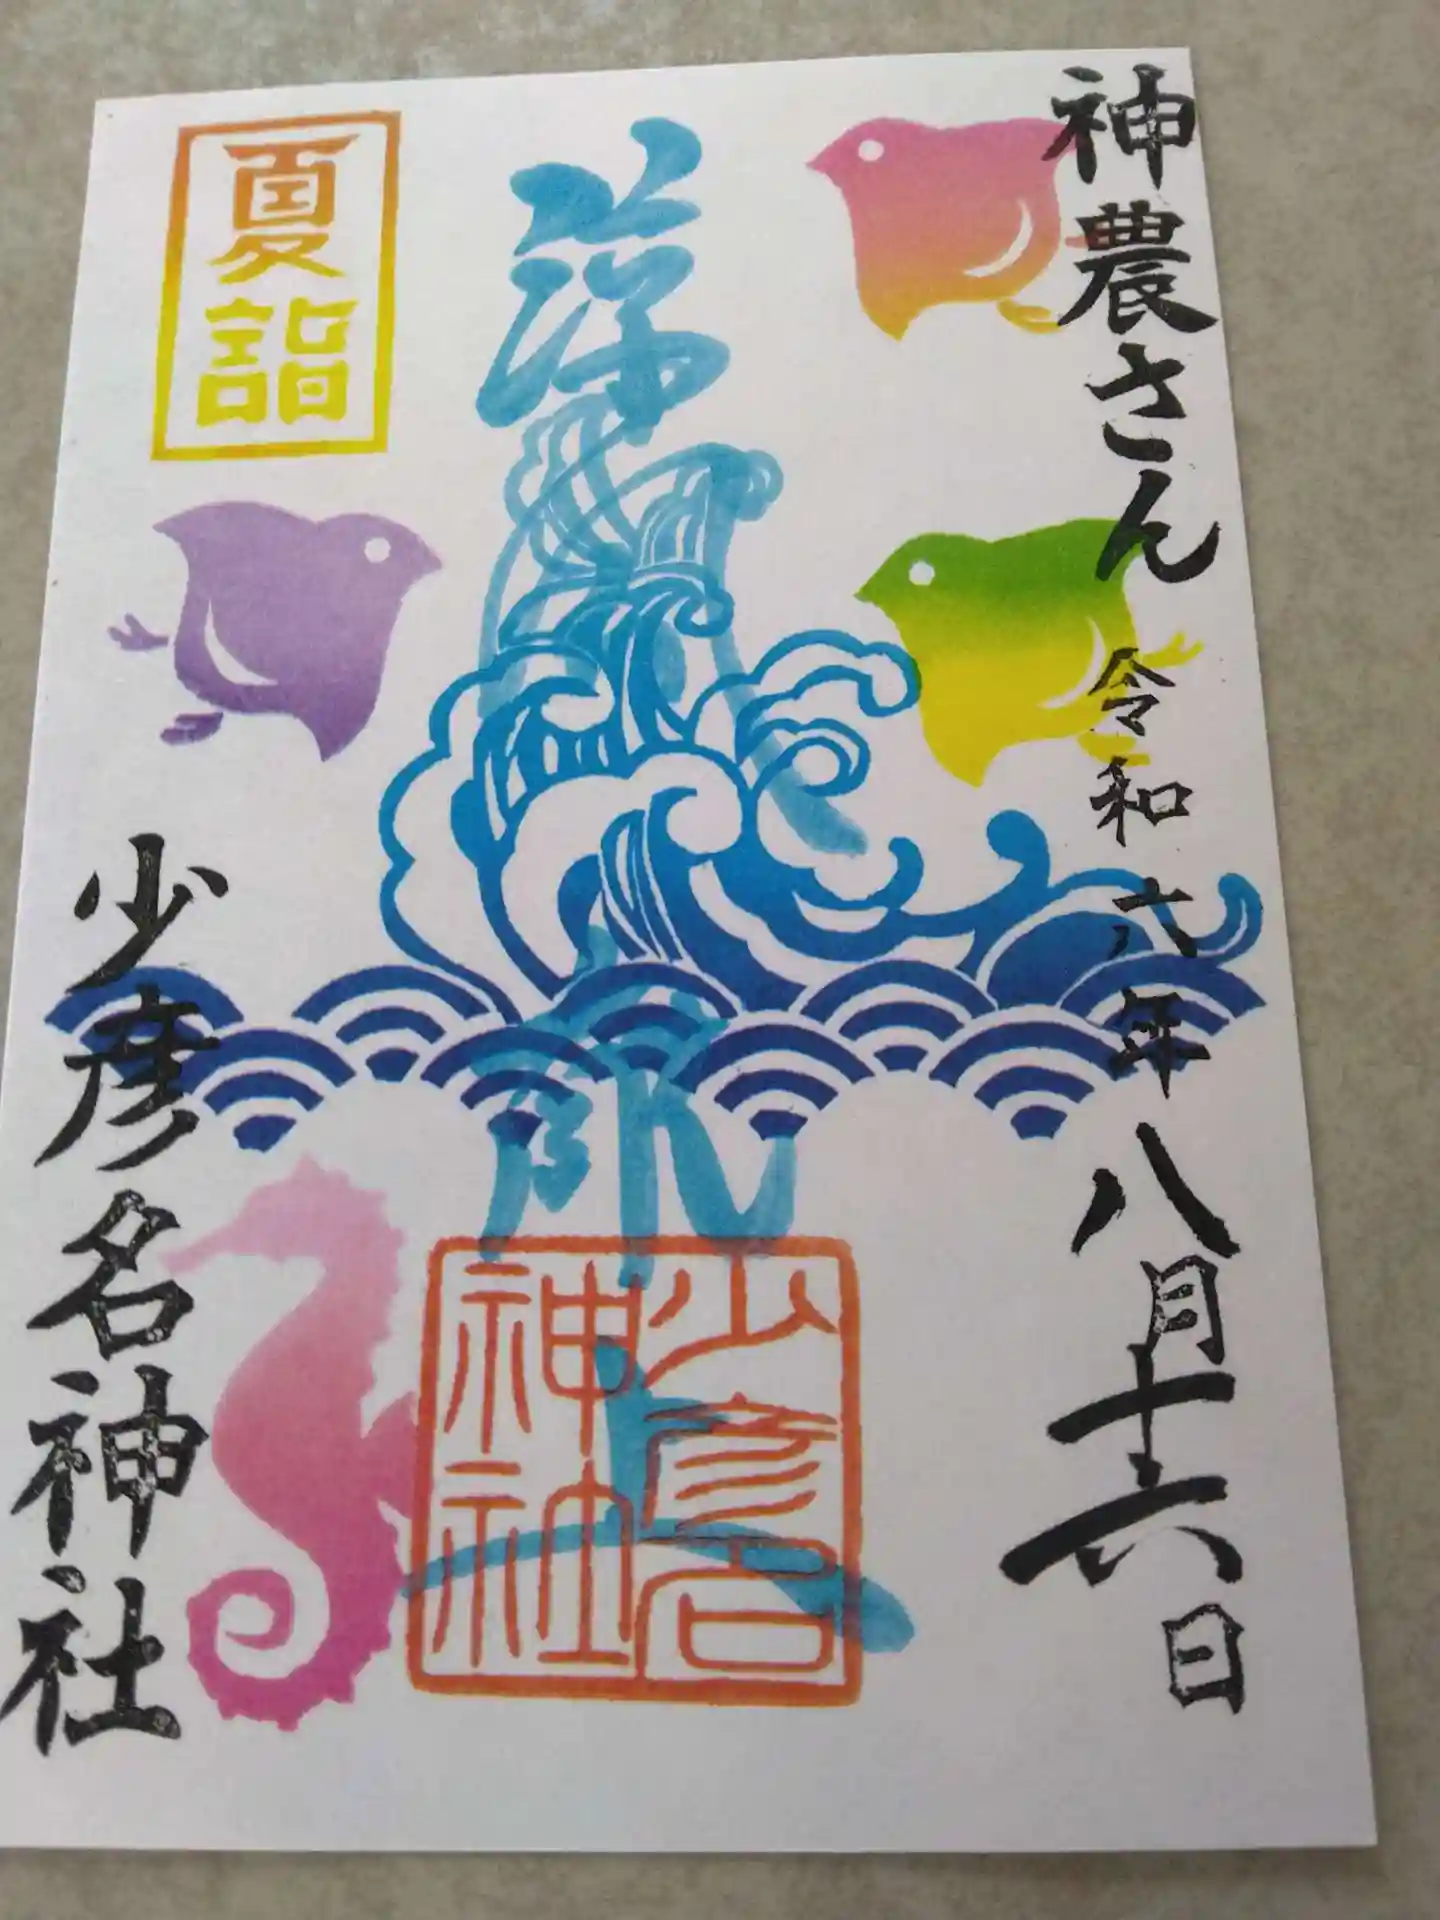 神農さん 令和六年 八月十六日
少彦名
神社
夏詣
少彦名神社